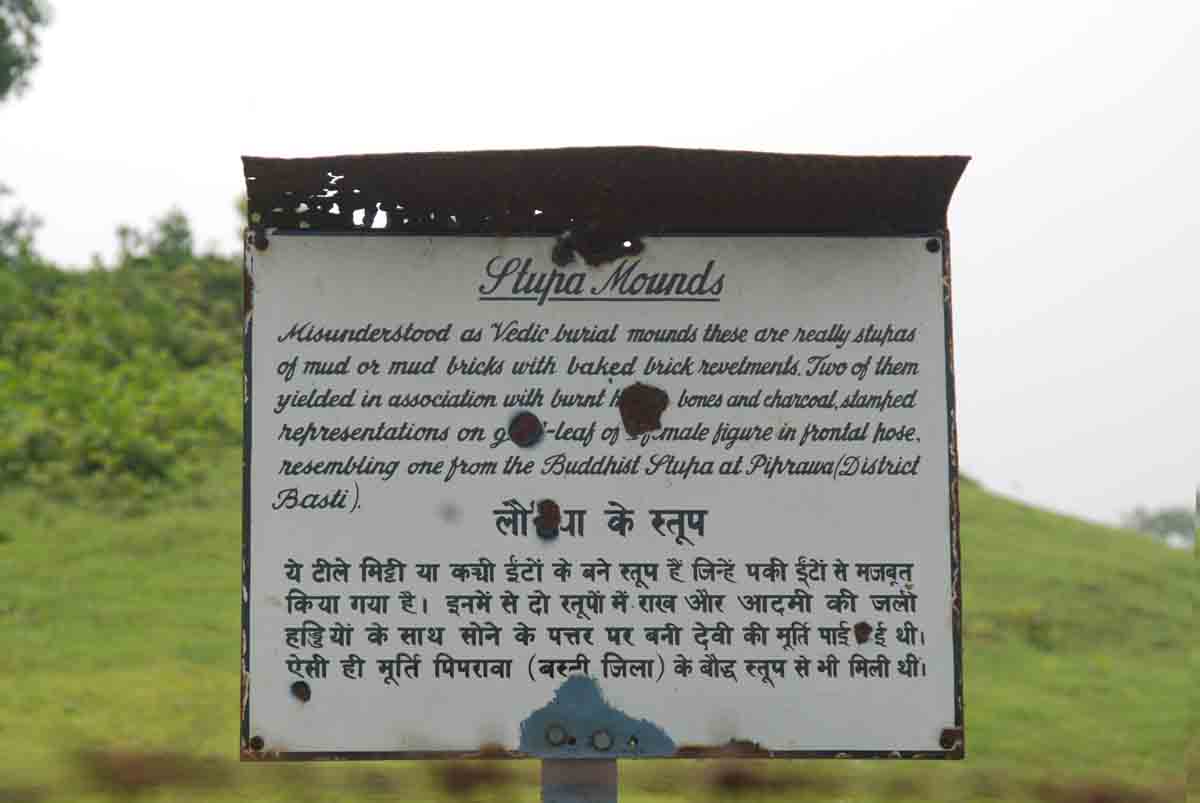 Stupa Mounds
Misunderstood as Vedic burial mounds these are really stupas
of mud or mud bricks with baked brick revetments. Two of them
yielded in association with burnt bones and charcoal, stamped
representations on -leaf of female figure in frontal pose,
resembling one from the Buddhist Stupa at Piprawa (District
Basti).
के स्तूप
ये टीले मिट्टी या कच्ची ईंटों के बने स्तूप हैं जिन्हें पकी ईंटों से मजबूत
किया गया है। इनमें से दो स्तूपों में राख और आदमी की जली
हड्डियों के साथ सोने के पत्तर पर बनी देवी की मूर्ति पाई ई थी।
ऐसी ही मूर्ति पिपरावा (बस्ती जिला) के बौद्ध स्तूप से भी मिली थी।